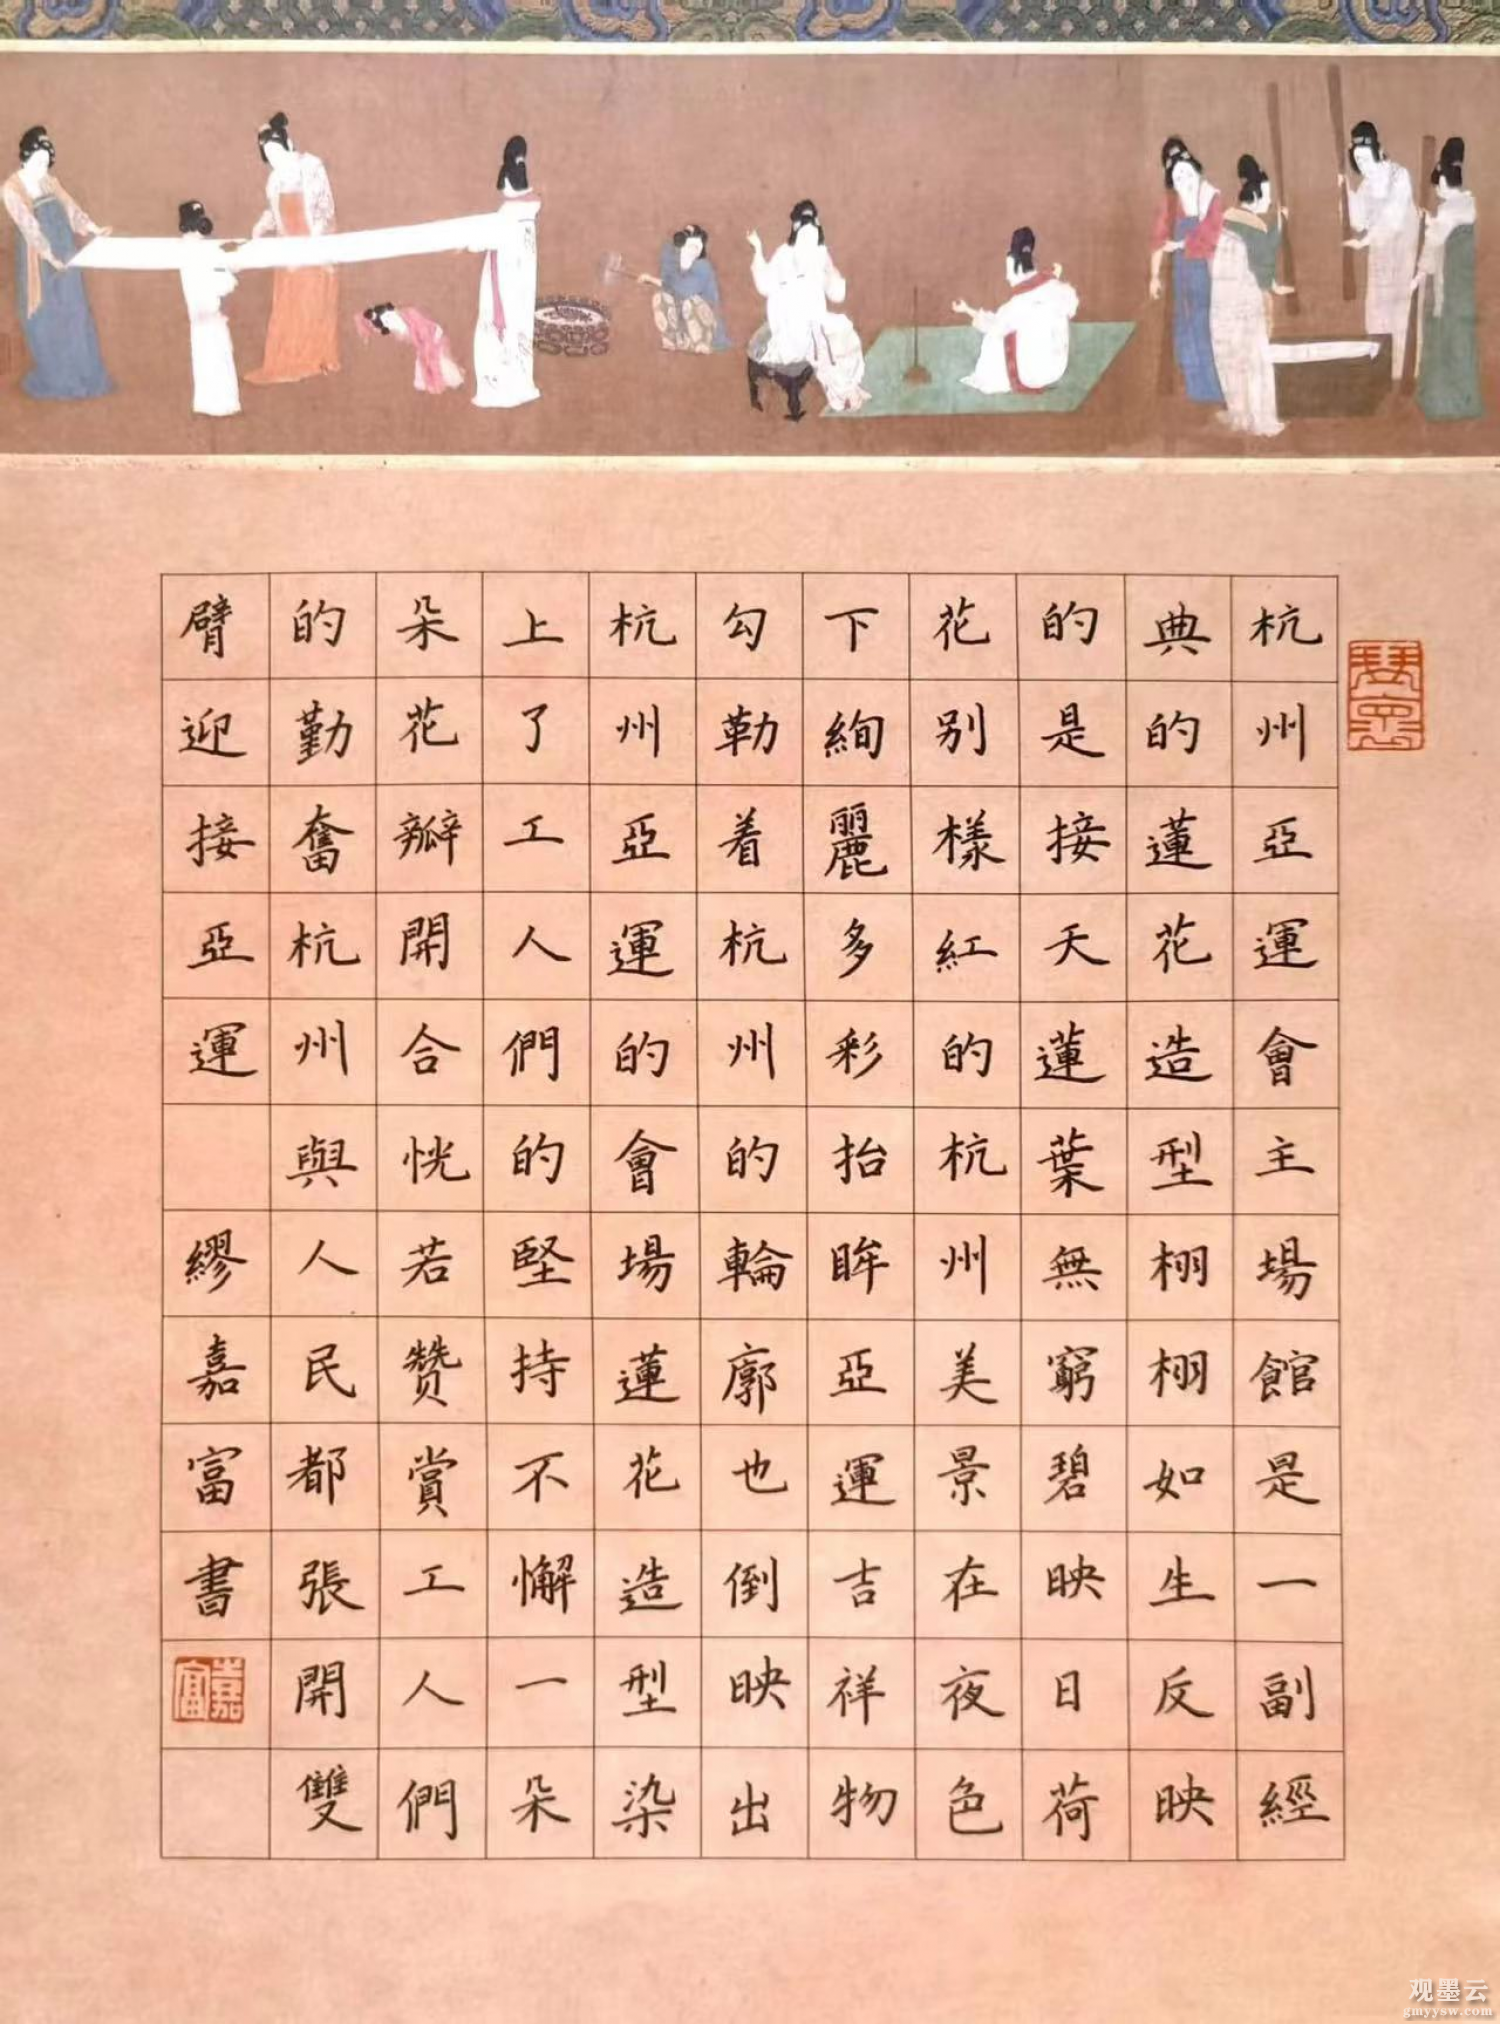 杭州亞運會主場館是一副經
典的蓮花造型栩栩如生反映
的是接天蓮葉無窮碧映日荷
花别樣紅的杭州美景在夜色
下絢麗多彩抬眸亞運吉祥物
勾勒着杭州的輪廓也倒映出
杭州亞運的會場蓮花造型染
上了工人們的堅持不懈一朵
朵花瓣開合恍若赞賞工人們
的勤奮杭州與人民都張開雙
臂迎接亞運 繆嘉富書
嘉富
观墨云
gmyysw.com